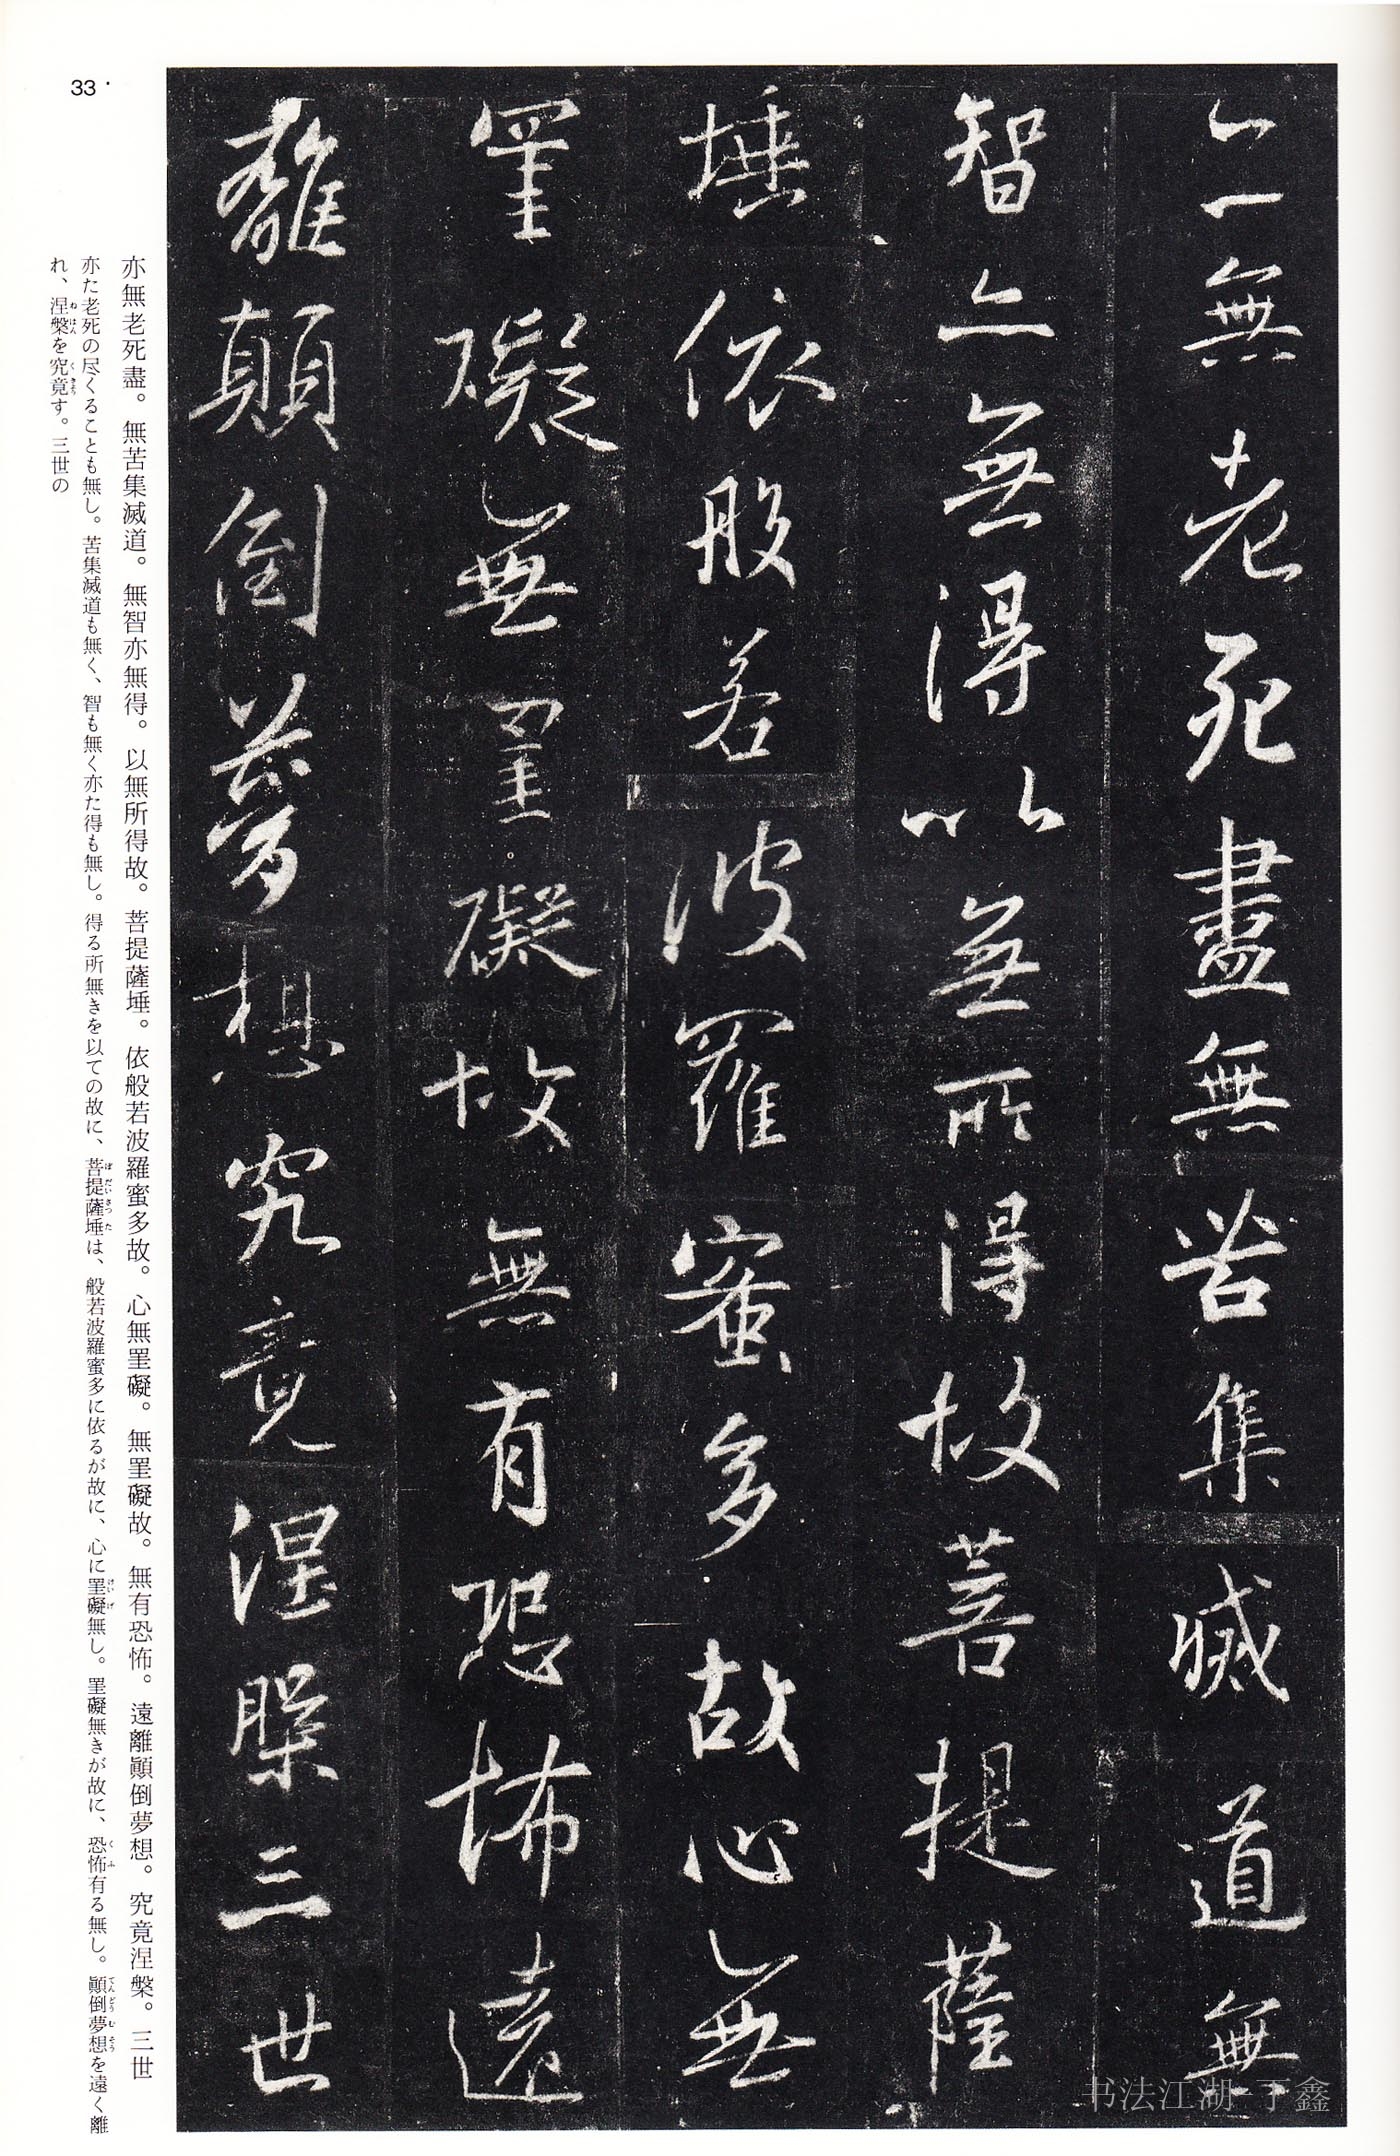 亦無老死盡無苦集滅道無
智亦無得以無所得故菩提薩
埵依般若波羅蜜多故心無
罣礙無罣礙故無有恐怖遠
離顛倒夢想究竟涅槃三世
亦無老死盡。無苦集滅道。無智亦無得。以無所得故。菩提薩埵。依般若波羅蜜多故。心無罣礙。無罣礙故。無有恐怖。遠離顚倒夢想。究竟涅槃。三世
亦た老死の尽くることも無し。苦集滅道も無く、智も無く亦た得も無し。得る所無きを以ての故に、菩提薩埵は、般若波羅蜜多に依るが故に、心に罣礙無し。罣礙無きが故に、恐怖有る無し。顚倒夢想を遠く離
れ、涅槃を究竟す。三世の
33
书法江湖-丁鑫